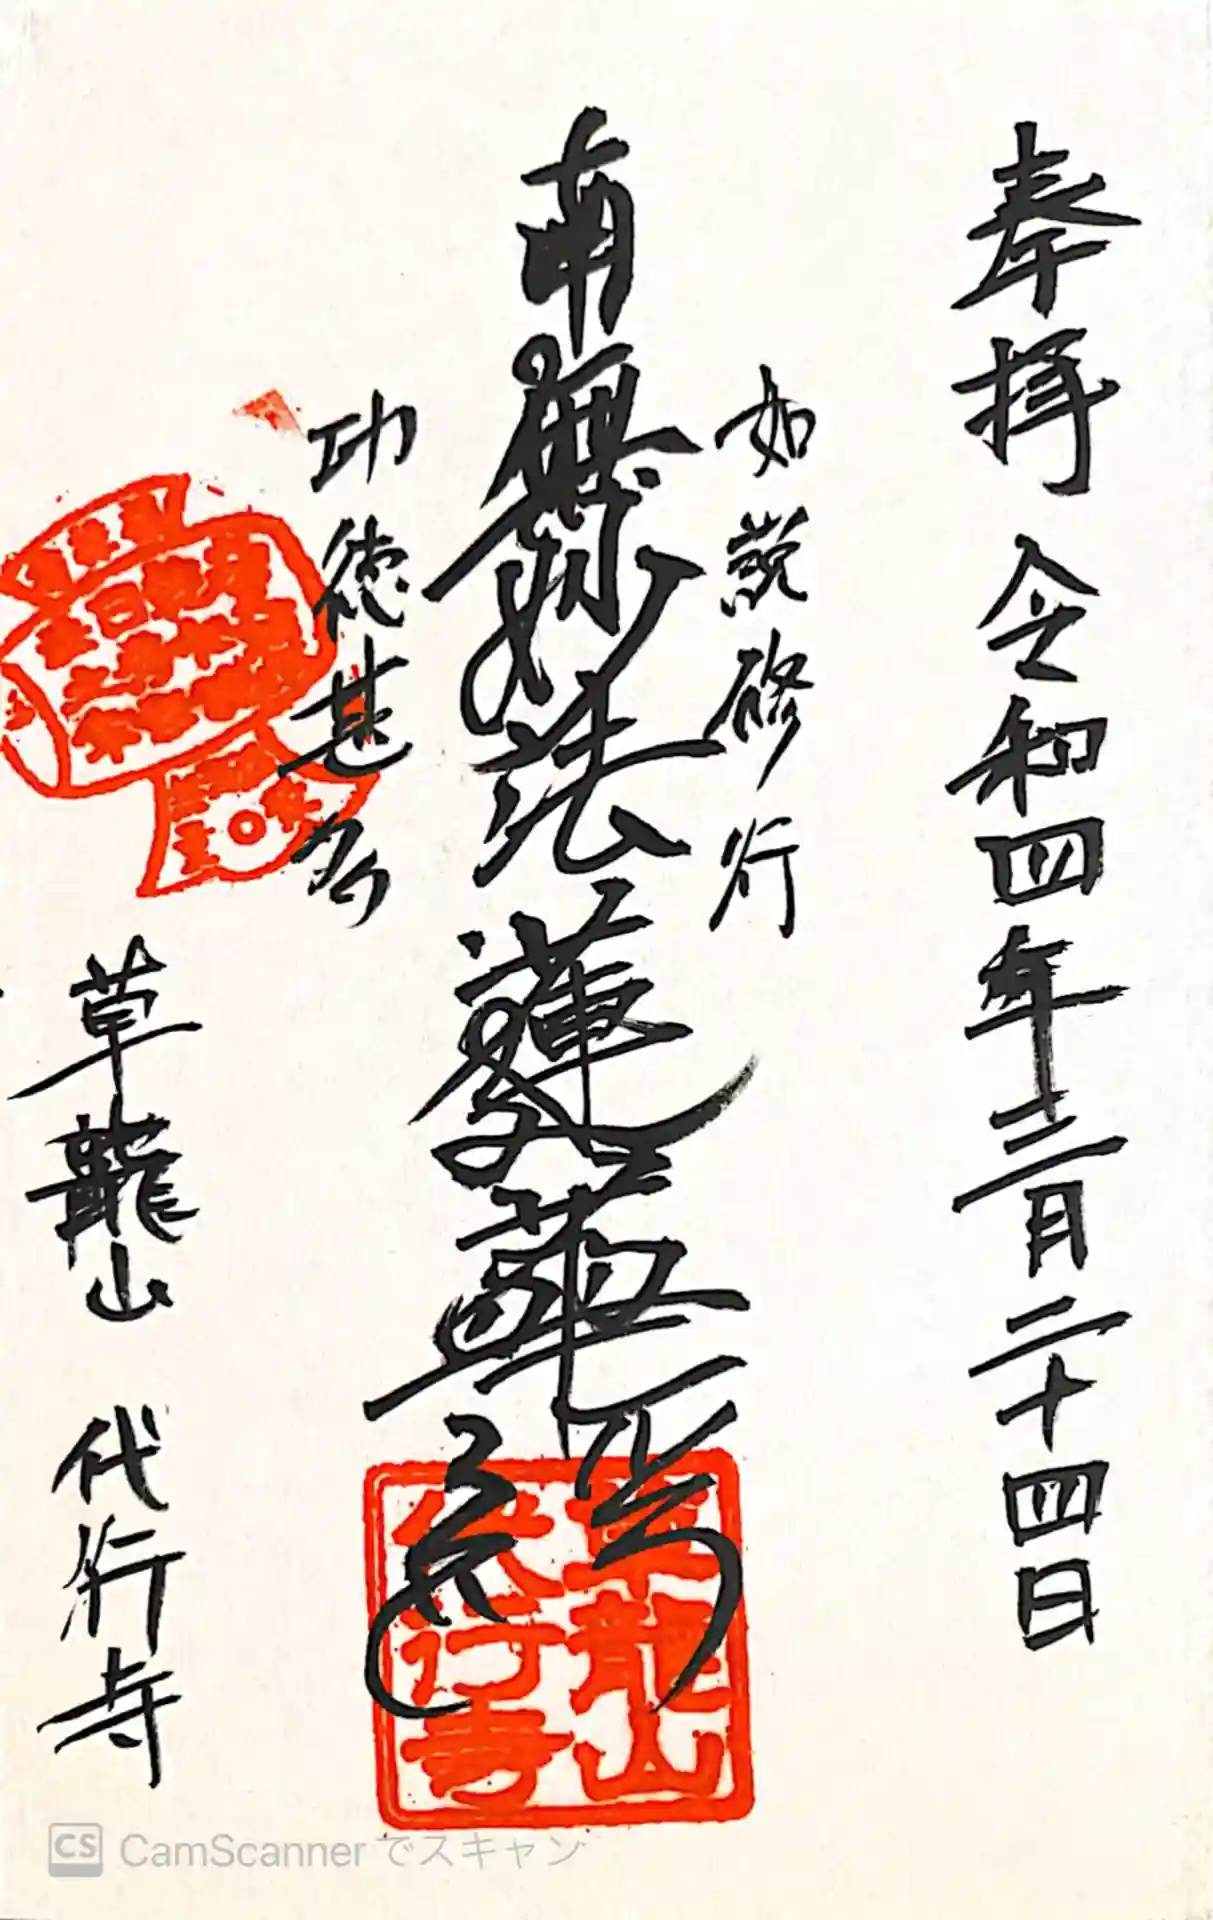 奉拝 令和四年三月二十四日
如説修行
南無妙法蓮華経
功徳甚多
草龍山 代行寺
草龍山
代行寺
CS CamScannerでスキャン